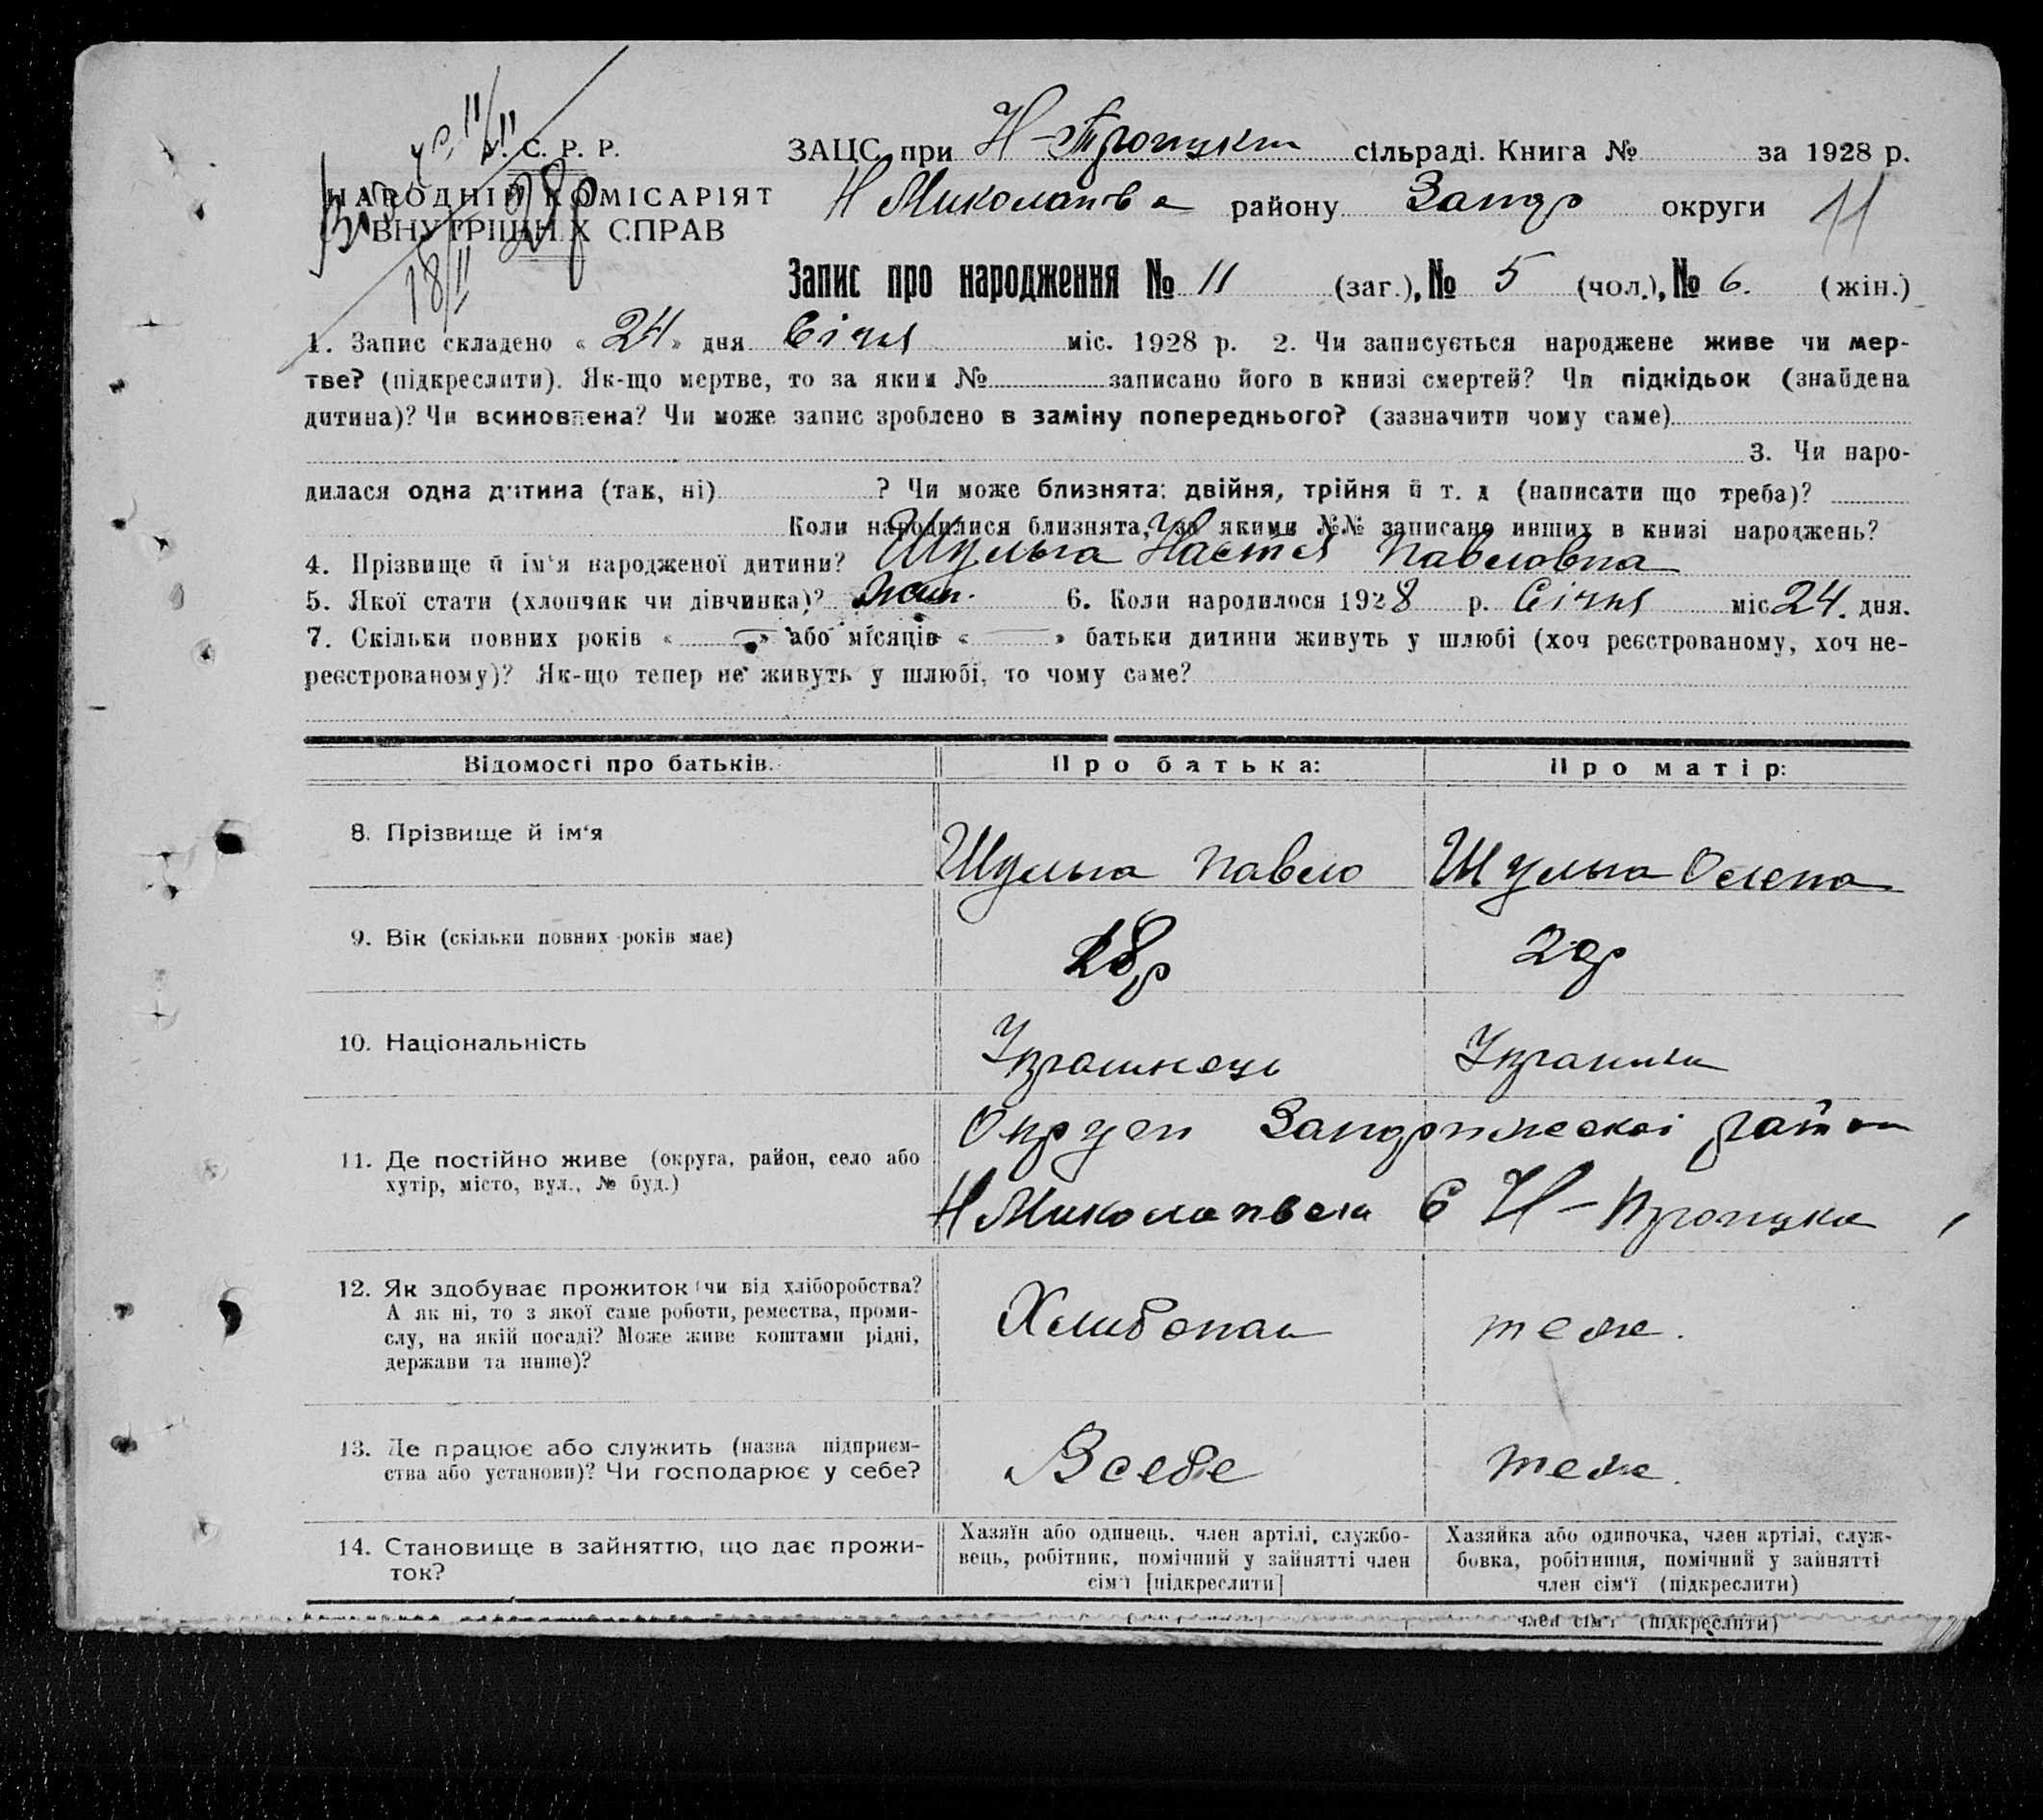 У. С. Р. Р.
НАРОДНІЙ КОМІСАРІЯТ
ВНУТРІШНІХ СПРАВ
18/II 28р
ЗАЦС при Н-Троицкій сільраді. Книга № за 1928 р.
Н Миколаївка району Запор округи 11
Запис про народження № 11 (заг.), № 5 (чол.), № 6. (жін.)
1. Запис складено « 24 » дня Січня міс. 1928 р. 2. Чи записується народжене живе чи мер-
тве? (підкреслити). Як-що мертве, то за яким № записано його в книзі смертей? Чи підкідьок (знайдена
дитина)? Чи всиновлена? Чи може запис зроблено в заміну попереднього? (зазначити чому саме)
3. Чи наро-
дилася одна дитина (так, ні) ? Чи може близнята: двійня, трійня й т. д (написати що треба)?
Коли народилися близнята, за якими №№ записано инших в книзі народжень?
4. Прізвище й ім'я народженої дитини? Шульга Настя Павловна
5. Якої стати (хлопчик чи дівчинка)? Жін. 6. Коли народилося 1928 р. Січня міс 24. дня.
7. Скільки повних років « — » або місяців « — » батьки дитини живуть у шлюбі (хоч реєстрованому, хоч не-
реєстрованому)? Як-що тепер не живуть у шлюбі, то чому саме?
Відомості про батьків. Про батька: Про матір:
8. Прізвище й ім'я Шульга Павло Шульга Олена
9. Вік (скільки повних років має) 28р 29р
10. Національність Украинець Украинка
11. Де постійно живе (округа, район, село або
хутір, місто, вул., № буд.)
Округи Запорижской район
Н Миколаивска С Н-Троицка
12. Як здобуває прожиток (чи від хліборобства?
А як ні, то з якої саме роботи, ремества, проми-
слу, на якій посаді? Може живе коштами рідні,
держави та инше)?
Хлибопаш теж.
13. Де працює або служить (назва підприєм-
ства або установи)? Чи господарює у себе?
В себе теж.
14. Становище в зайняттю, що дає прожи-
ток?
Хазяїн або одинець, член артілі, службо-
вець, робітник, помічний у зайнятті член
сім'ї [підкреслити]
Хазяйка або одиночка, член артілі, служ-
бовка, робітниця, помічний у зайнятті
член сім'ї (підкреслити)
член сім'ї (підкреслити)